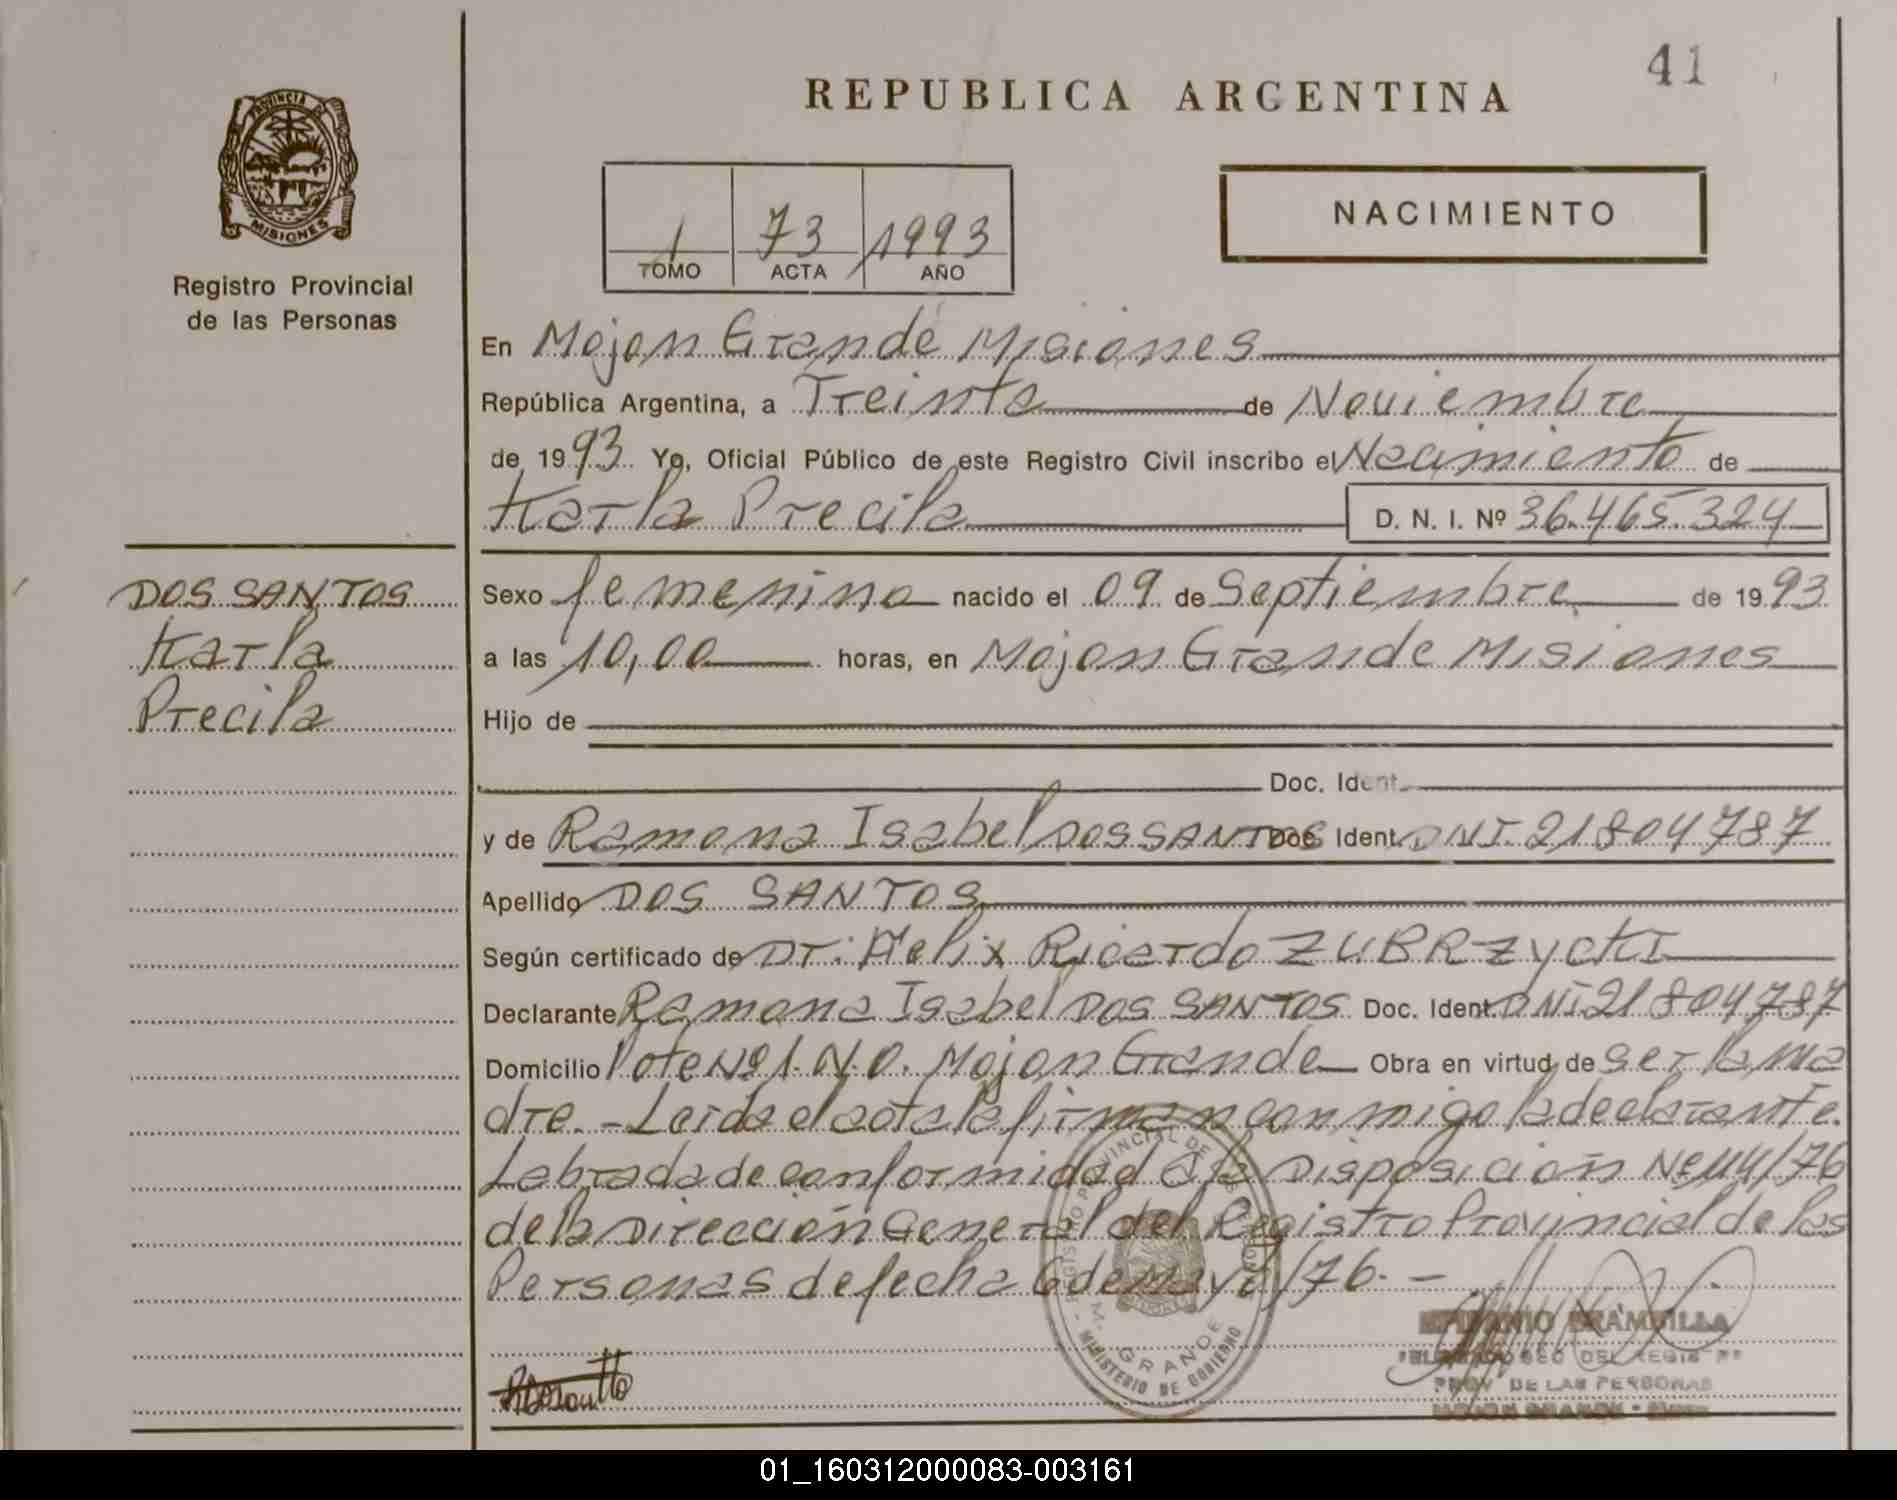 41
REPUBLICA ARGENTINA
PROVINCIA DE
MISIONES
Registro Provincial
de las Personas
1 73 1993
TOMO ACTA AÑO
NACIMIENTO
En Mojon Grande Misiones
República Argentina, a Treinta de Noviembre
de 1993. Yo, Oficial Público de este Registro Civil inscribo el Nacimiento de
Karla Precila D. N. I. Nº 36.465.324
DOS SANTOS
Karla
Precila
Sexo femenino nacido el 09 de Septiembre de 1993
a las 10,00 horas, en Mojon Grande Misiones
Hijo de
Doc. Ident.
y de Ramona Isabel DOS SANTOS Doc. Ident. DNI. 21804787
Apellido DOS SANTOS
Según certificado de Dr: Felix Ricardo ZUBRZYCKI
Declarante Ramona Isabel DOS SANTOS Doc. Ident. DNI 21804787
Domicilio Lote Nº 1. N.O. Mojon Grande Obra en virtud de ser la ma
dre. - Leida el acta la firman conmigo la declarante.
Labrada de conformidad a la Disposición Nº 114/76
de la Dirección General del Registro Provincial de las
Personas de fecha 6 de mayo/76. -
REGISTRO PROVINCIAL DE LAS PERSONAS
M. GRANDE
MINISTERIO DE GOBIERNO
BRAMBILLA
DEL REGIST
PROV DE LAS PERSONAS
MOJON GRANDE
01_160312000083-003161